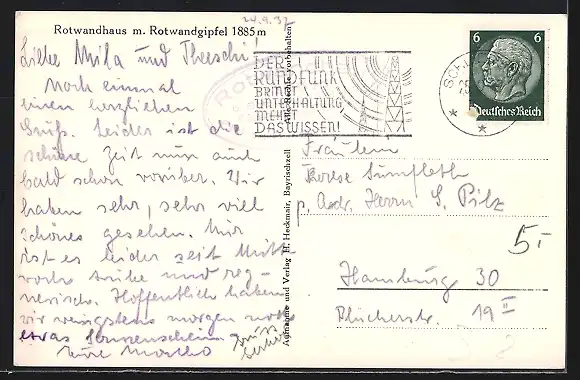 24.9.37
Rotwandhaus m. Rotwandgipfel 1885 m
Liebe Mila und Threschi!
Noch einmal
einen herzlichen
Gruß. Leider ist die
schöne Zeit nun auch
bald schon vorüber. Wir
haben sehr, sehr viel
schönes gesehen. Nur
ist es leider seit Mitt-
woch trübe und reg-
nerisch. Hoffentlich haben
wir wenigstens morgen noch
etwas Sonnenschein.
Eure Martha
Gruß
Aufnahme und Verlag H. Heckmair, Bayrischzell
Alle Rechte vorbehalten
DER
RUNDFUNK
BRINGT
UNTERHALTUNG
MEHRT
DAS WISSEN!
6 6
Deutsches Reich
Fräulein
Therese Sümfleth
p. Adr. Herrn G. Pilz
5.-
Hamburg 30
Blücherstr. 19 II